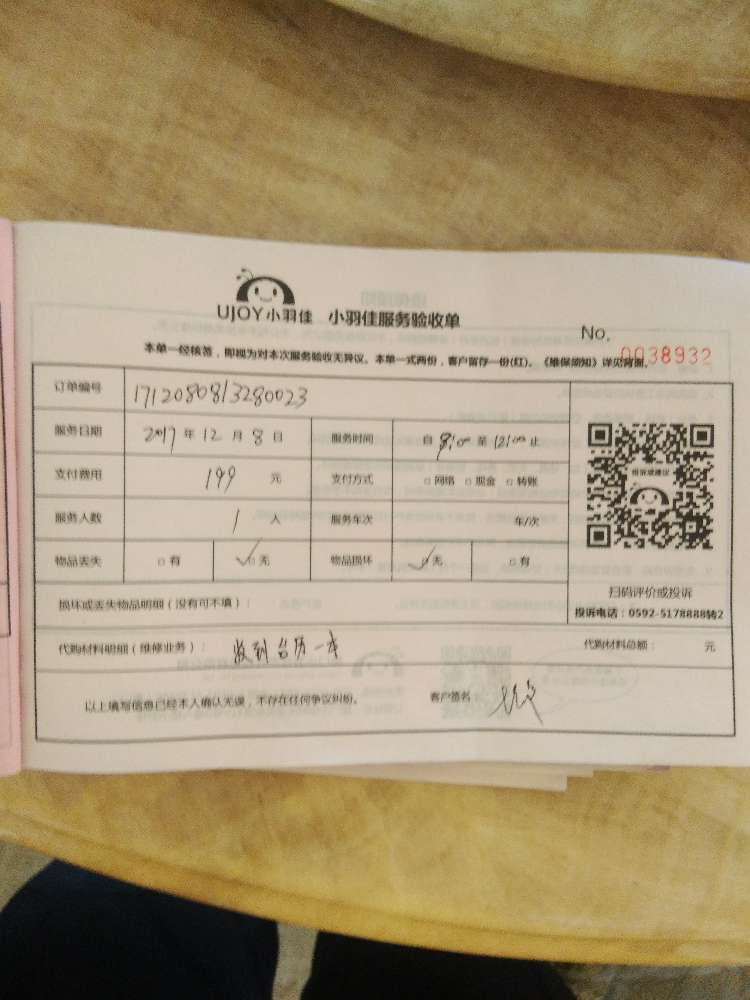 UJOY小羽佳 小羽佳服务验收单
No. 0038932
本单一经核签，即视为对本次服务验收无异议。本单一式两份，客户留存一份(红)。《维保须知》详见背面。
订单编号 1712080813280023
服务日期 2017年12月8日 服务时间 自8:00至12:00止
支付费用 199元 支付方式 □网络 □现金 □转账
服务人数 1人 服务车次 年/次
物品丢失 □有 ✓□无 物品损坏 ✓□无 □有
投诉或建议
扫码评价或投诉
投诉电话：0592-5178888转2
损坏或丢失物品明细（没有可不填）：
代购材料明细（维修业务）： 收到台历一本 代购材料总额： 元
以上填写信息已经本人确认无误，不存在任何争议纠纷。 客户签名：